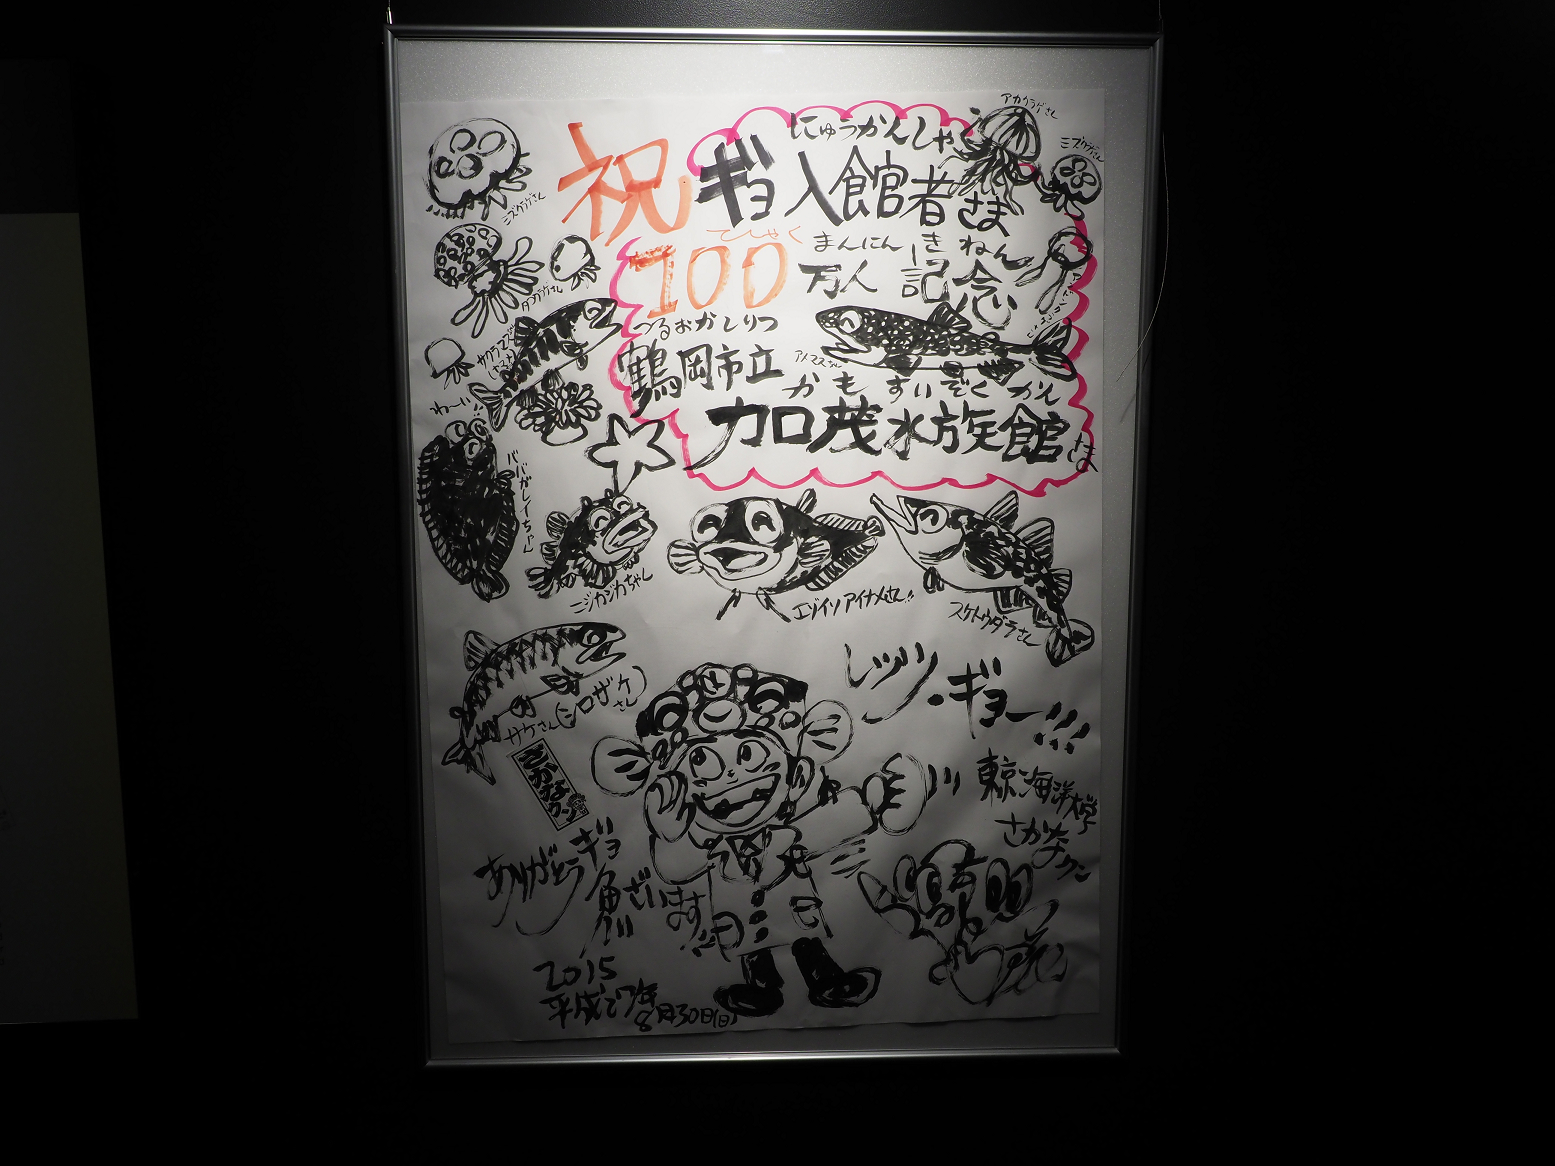 アカクラゲさん
ミズクラゲさん
ミズクラゲさん
にゅうかんしゃ
祝 ギョ入館者さま
まんにん きねん
100万人 記念
つるおかしりつ
鶴岡市立
かも すいぞくかん
加茂水族館さま
サクラマス
わ〜い!!
ババガレイちゃん
ニジカジカちゃん
エゾイソアイナメさん!!
スケトウダラさん
サケさん(シロザケさん)
さかなクン
レッツ・ギョー!!!
東京海洋大学
さかなクン
ありがとうギョ
魚ざいます
2015
平成27年
8月30日(日)